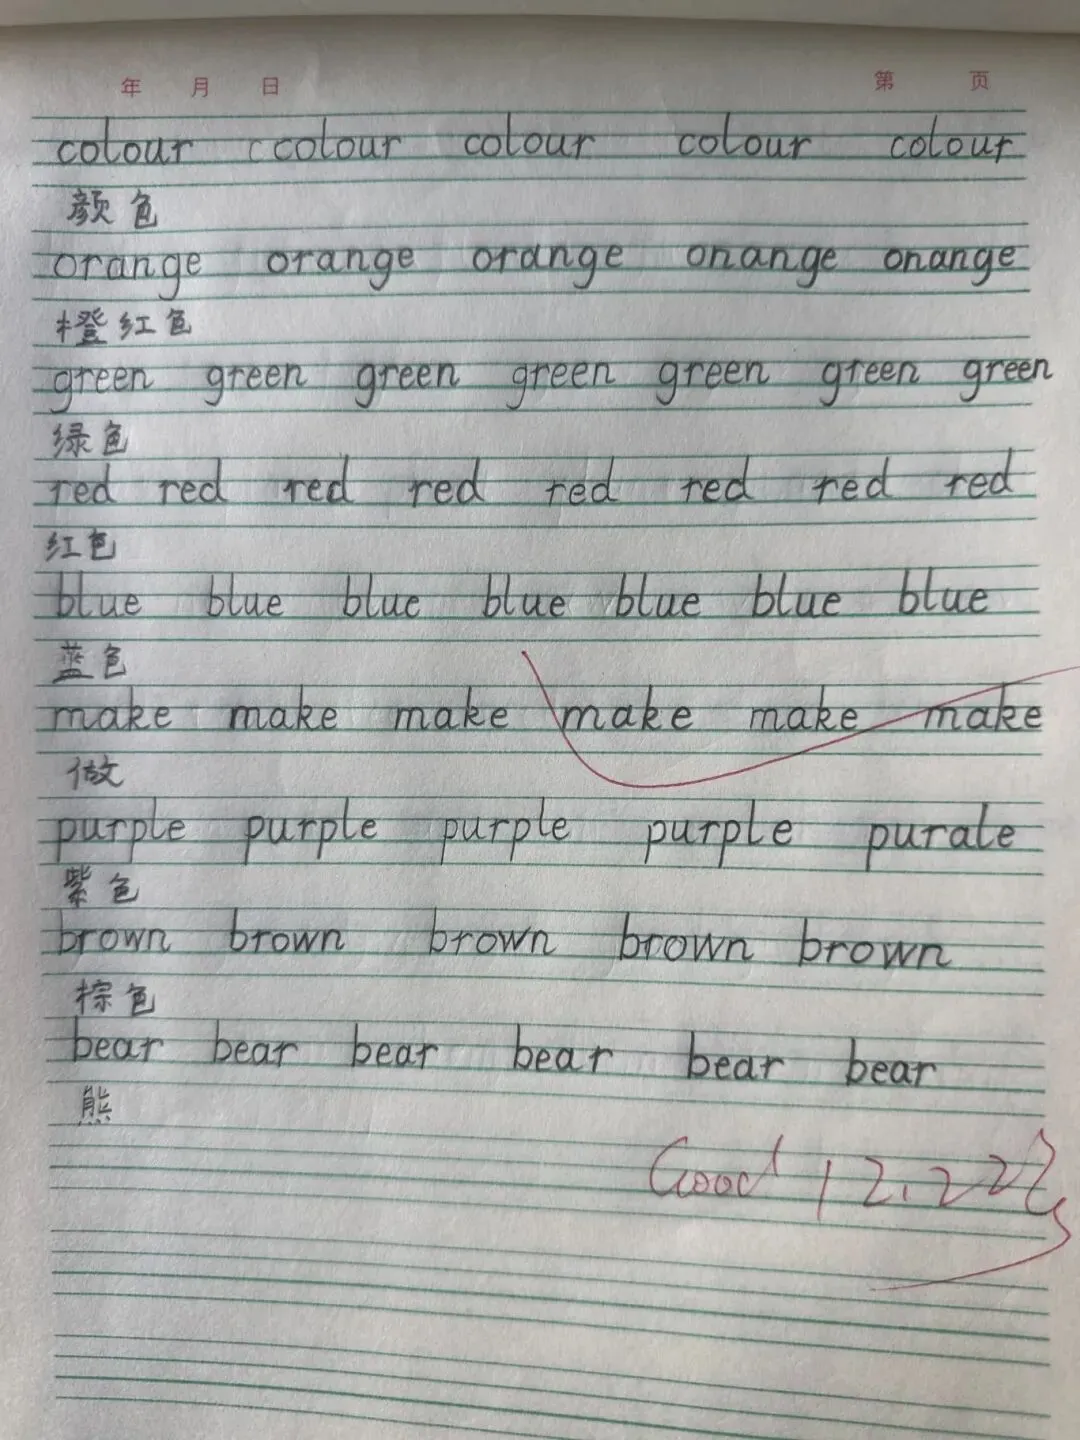 年 月 日 第 页
colour ccolour colour colour colour
颜色
orange orange orange onange onange
橙红色
green green green green green green green
绿色
red red red red red red red red
红色
blue blue blue blue blue blue blue
蓝色
make make make make make make
做
purple purple purple purple purale
紫色
brown brown brown brown brown
棕色
bear bear bear bear bear bear
熊
Good 12.22